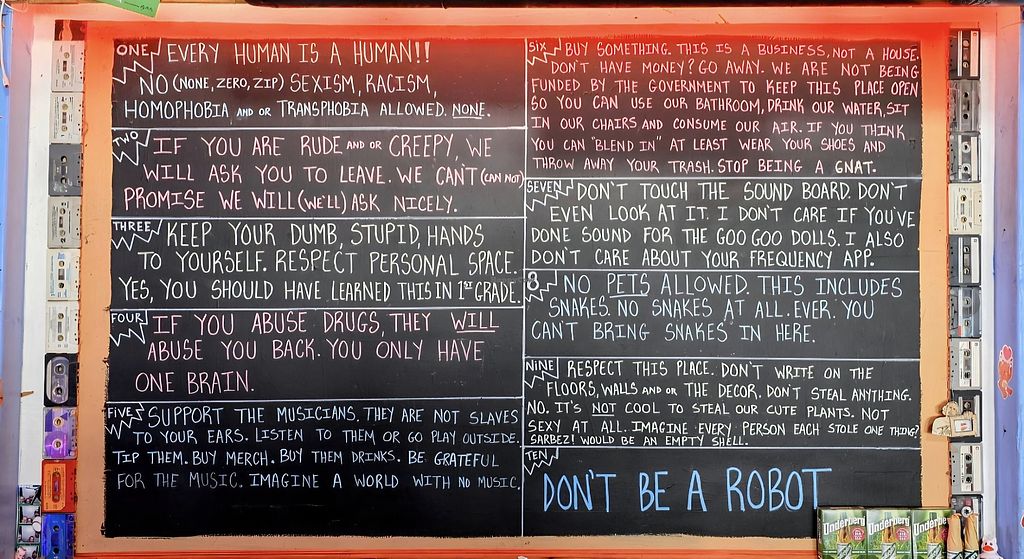 ONE EVERY HUMAN IS A HUMAN!!
NO (NONE, ZERO, ZIP) SEXISM, RACISM,
HOMOPHOBIA AND OR TRANSPHOBIA ALLOWED. NONE.
TWO IF YOU ARE RUDE AND OR CREEPY, WE
WILL ASK YOU TO LEAVE. WE CAN'T (CAN NOT)
PROMISE WE WILL (WE'LL) ASK NICELY.
THREE KEEP YOUR DUMB, STUPID, HANDS
TO YOURSELF. RESPECT PERSONAL SPACE.
YES, YOU SHOULD HAVE LEARNED THIS IN 1ST GRADE.
FOUR IF YOU ABUSE DRUGS, THEY WILL
ABUSE YOU BACK. YOU ONLY HAVE
ONE BRAIN.
FIVE SUPPORT THE MUSICIANS. THEY ARE NOT SLAVES
TO YOUR EARS. LISTEN TO THEM OR GO PLAY OUTSIDE.
TIP THEM. BUY MERCH. BUY THEM DRINKS. BE GRATEFUL
FOR THE MUSIC. IMAGINE A WORLD WITH NO MUSIC.
SIX BUY SOMETHING. THIS IS A BUSINESS, NOT A HOUSE.
DON'T HAVE MONEY? GO AWAY. WE ARE NOT BEING
FUNDED BY THE GOVERNMENT TO KEEP THIS PLACE OPEN
SO YOU CAN USE OUR BATHROOM, DRINK OUR WATER, SIT
IN OUR CHAIRS AND CONSUME OUR AIR. IF YOU THINK
YOU CAN "BLEND IN" AT LEAST WEAR YOUR SHOES AND
THROW AWAY YOUR TRASH. STOP BEING A GNAT.
SEVEN DON'T TOUCH THE SOUND BOARD. DON'T
EVEN LOOK AT IT. I DON'T CARE IF YOU'VE
DONE SOUND FOR THE GOO GOO DOLLS. I ALSO
DON'T CARE ABOUT YOUR FREQUENCY APP.
8 NO PETS ALLOWED. THIS INCLUDES
SNAKES. NO SNAKES AT ALL. EVER. YOU
CAN'T BRING SNAKES IN HERE.
NINE RESPECT THIS PLACE. DON'T WRITE ON THE
FLOORS, WALLS AND OR THE DECOR. DON'T STEAL ANYTHING.
NO. IT'S NOT COOL TO STEAL OUR CUTE PLANTS. NOT
SEXY AT ALL. IMAGINE EVERY PERSON EACH STOLE ONE THING?
SARBEZ! WOULD BE AN EMPTY SHELL.
TEN
DON'T BE A ROBOT
Underberg Underberg Underberg